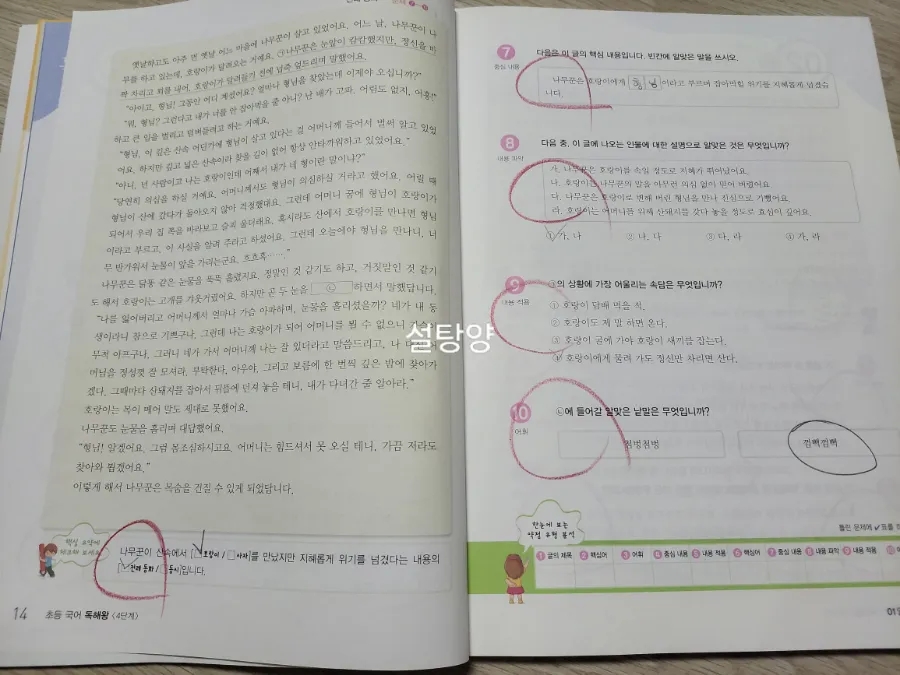 옛날하고도 아주 먼 옛날 어느 마을에 나무꾼이 살고 있었어요. 어느 날, 나무꾼이 나
무를 하고 있는데, 호랑이가 달려오는 거예요. ㉠나무꾼은 눈앞이 캄캄했지만, 정신을 바
짝 차리고 꾀를 내어, 호랑이가 달려들기 전에 넙죽 엎드리며 말했어요.
"아이고, 형님! 그동안 어디 계셨어요? 얼마나 형님을 찾았는데 이제야 오십니까?"
"뭐, 형님? 그런다고 내가 너를 안 잡아먹을 줄 아니? 난 배가 고파. 어림도 없지, 어흥!"
하고 큰 입을 벌리고 덤벼들려고 하는 거예요.
"형님, 이 깊은 산속 어딘가에 형님이 살고 있다는 걸 어머니께 들어서 벌써 알고 있었
어요. 하지만 깊고 넓은 산속이라 찾을 길이 없어 항상 안타까워하고 있었어요."
"아니, 넌 사람이고 나는 호랑이인데 어째서 내가 네 형이란 말이냐?"
"당연히 의심을 하실 거예요. 어머니께서도 형님이 의심하실 거라고 했어요. 어릴 때
형님이 산에 갔다가 돌아오지 않아 걱정했대요. 그런데 어머니 꿈에 형님이 호랑이가
되어서 우리 집 쪽을 바라보고 슬피 울더래요. 혹시라도 산에서 호랑이를 만나면 형님
이라고 부르고, 이 사실을 알려 주라고 하셨어요. 그런데 오늘에야 형님을 만나니, 너
무 반가워서 눈물이 앞을 가리는군요. 흐흐흑……."
나무꾼은 닭똥 같은 눈물을 뚝뚝 흘렸지요. 정말인 것 같기도 하고, 거짓말인 것 같기
도 해서 호랑이는 고개를 갸웃거렸어요. 하지만 곧 두 눈을 ㉡ 하면서 말했답니다.
"나를 잃어버리고 어머니께서 얼마나 가슴 아파하며, 눈물을 흘리셨을까? 네가 내 동
생이라니 참으로 기쁘구나. 그런데 나는 호랑이가 되어 어머니를 뵐 수 없으니 가슴이
무척 아프구나. 그러니 네가 가서 어머니께 나는 잘 있더라고 말씀드리고, 나 대신
머님을 정성껏 잘 모셔라. 부탁한다, 아우야. 그리고 보름에 한 번씩 깊은 밤에 찾아가
겠다. 그때마다 산돼지를 잡아서 뒤뜰에 던져 놓을 테니, 내가 다녀간 줄 알아라."
호랑이는 목이 메어 말도 제대로 못했어요.
나무꾼도 눈물을 흘리며 대답했어요.
"형님! 알겠어요. 그럼 몸조심하시고요. 어머니는 힘드셔서 못 오실 테니, 가끔 저라도
찾아와 뵙겠어요."
이렇게 해서 나무꾼은 목숨을 건질 수 있게 되었답니다.
나무꾼이 산속에서 [호랑이 / 사자]를 만났지만 지혜롭게 위기를 넘겼다는 내용의
[전래 동화 / 동시]입니다.
14 초등 국어 독해왕 〈4단계〉
7 다음은 이 글의 핵심 내용입니다. 빈칸에 알맞은 말을 쓰시오.
중심 내용
나무꾼은 호랑이에게 형님이라고 부르며 잡아먹힐 위기를 지혜롭게 넘겼습
니다.
8 다음 중, 이 글에 나오는 인물에 대한 설명으로 알맞은 것은 무엇입니까?
내용 파악
가. 나무꾼은 호랑이를 속일 정도로 지혜가 뛰어났어요.
나. 호랑이는 나무꾼의 말을 아무런 의심 없이 믿어 버렸어요.
다. 나무꾼은 호랑이로 변해 버린 형님을 만나 진심으로 기뻤어요.
라. 호랑이는 어머니를 위해 산돼지를 갖다 놓을 정도로 효심이 깊어요.
① 가, 나 ② 나, 다 ③ 다, 라 ④ 가, 라
9 ㉠의 상황에 가장 어울리는 속담은 무엇입니까?
내용 적용
① 호랑이 담배 먹을 적.
② 호랑이도 제 말 하면 온다.
③ 호랑이 굴에 가야 호랑이 새끼를 잡는다.
④ 호랑이에게 물려 가도 정신만 차리면 산다.
설탕양
10 ㉡에 들어갈 알맞은 낱말은 무엇입니까?
어휘
첨벙첨벙 껌뻑껌뻑
한눈에 보는
약점 유형 분석
틀린 문제에 ✔표를
1 글의 제목 2 핵심어 3 어휘 4 중심 내용 5 내용 적용 6 핵심어 7 중심 내용 8 내용 파악 9 내용 적용 10
01